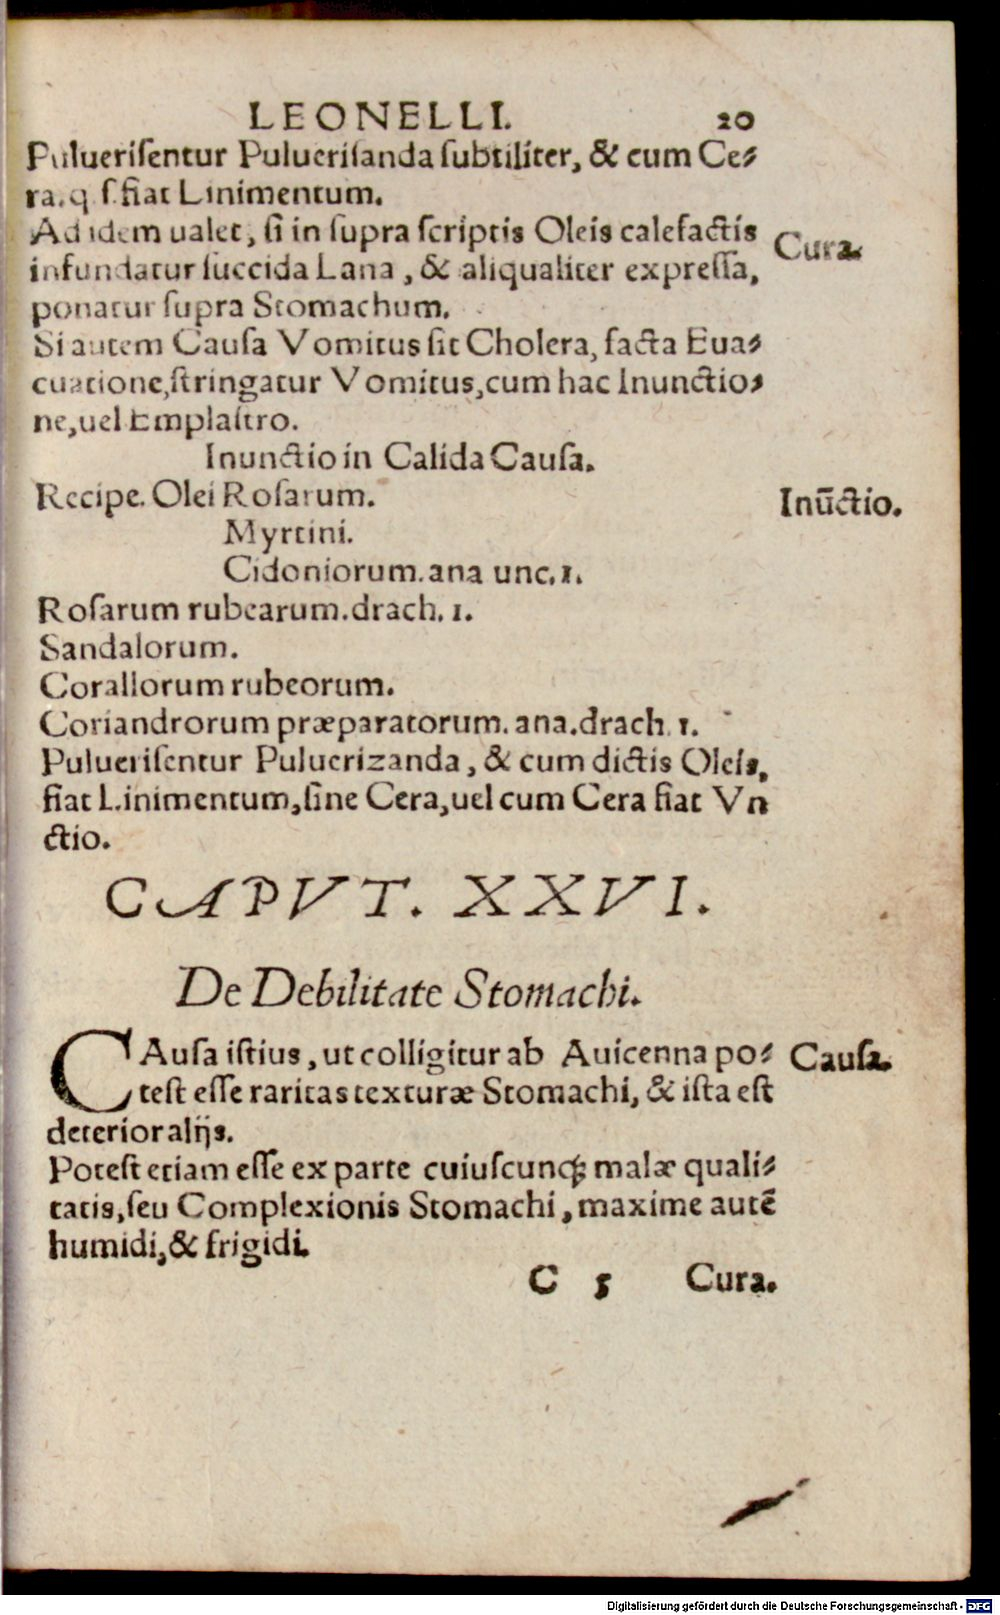 LEONELLI. 20
Puluerisentur Puluerisanda subtiliter, & cum Ce⸗
ra. q s. fiat Linimentum.
Ad idem ualet, si in supra scriptis Oleis calefactis
Cura.
infundatur succida Lana, & aliqualiter expressa,
ponatur supra Stomachum.
Si autem Causa Vomitus sit Cholera, facta Eua⸗
cuatione, stringatur Vomitus, cum hac Inunctio⸗
ne, uel Emplastro.
Inunctio in Calida Causa.
Recipe. Olei Rosarum.
Inūctio.
Myrtini.
Cidoniorum. ana unc. 1.
Rosarum rubearum. drach. 1.
Sandalorum.
Corallorum rubeorum.
Coriandrorum præparatorum. ana. drach. 1.
Puluerisentur Puluerizanda, & cum dictis Oleis,
fiat Linimentum, sine Cera, uel cum Cera fiat Vn
ctio.
CAPVT. XXVI.
De Debilitate Stomachi.
CAusa istius, ut colligitur ab Auicenna po⸗
Causa.
test esse raritas texturæ Stomachi, & ista est
deterior alijs.
Potest etiam esse ex parte cuiuscunqꝫ malæ quali⸗
tatis, seu Complexionis Stomachi, maxime autē
humidi, & frigidi.
C 5 Cura.
Digitalisierung gefördert durch die Deutsche Forschungsgemeinschaft - DFG